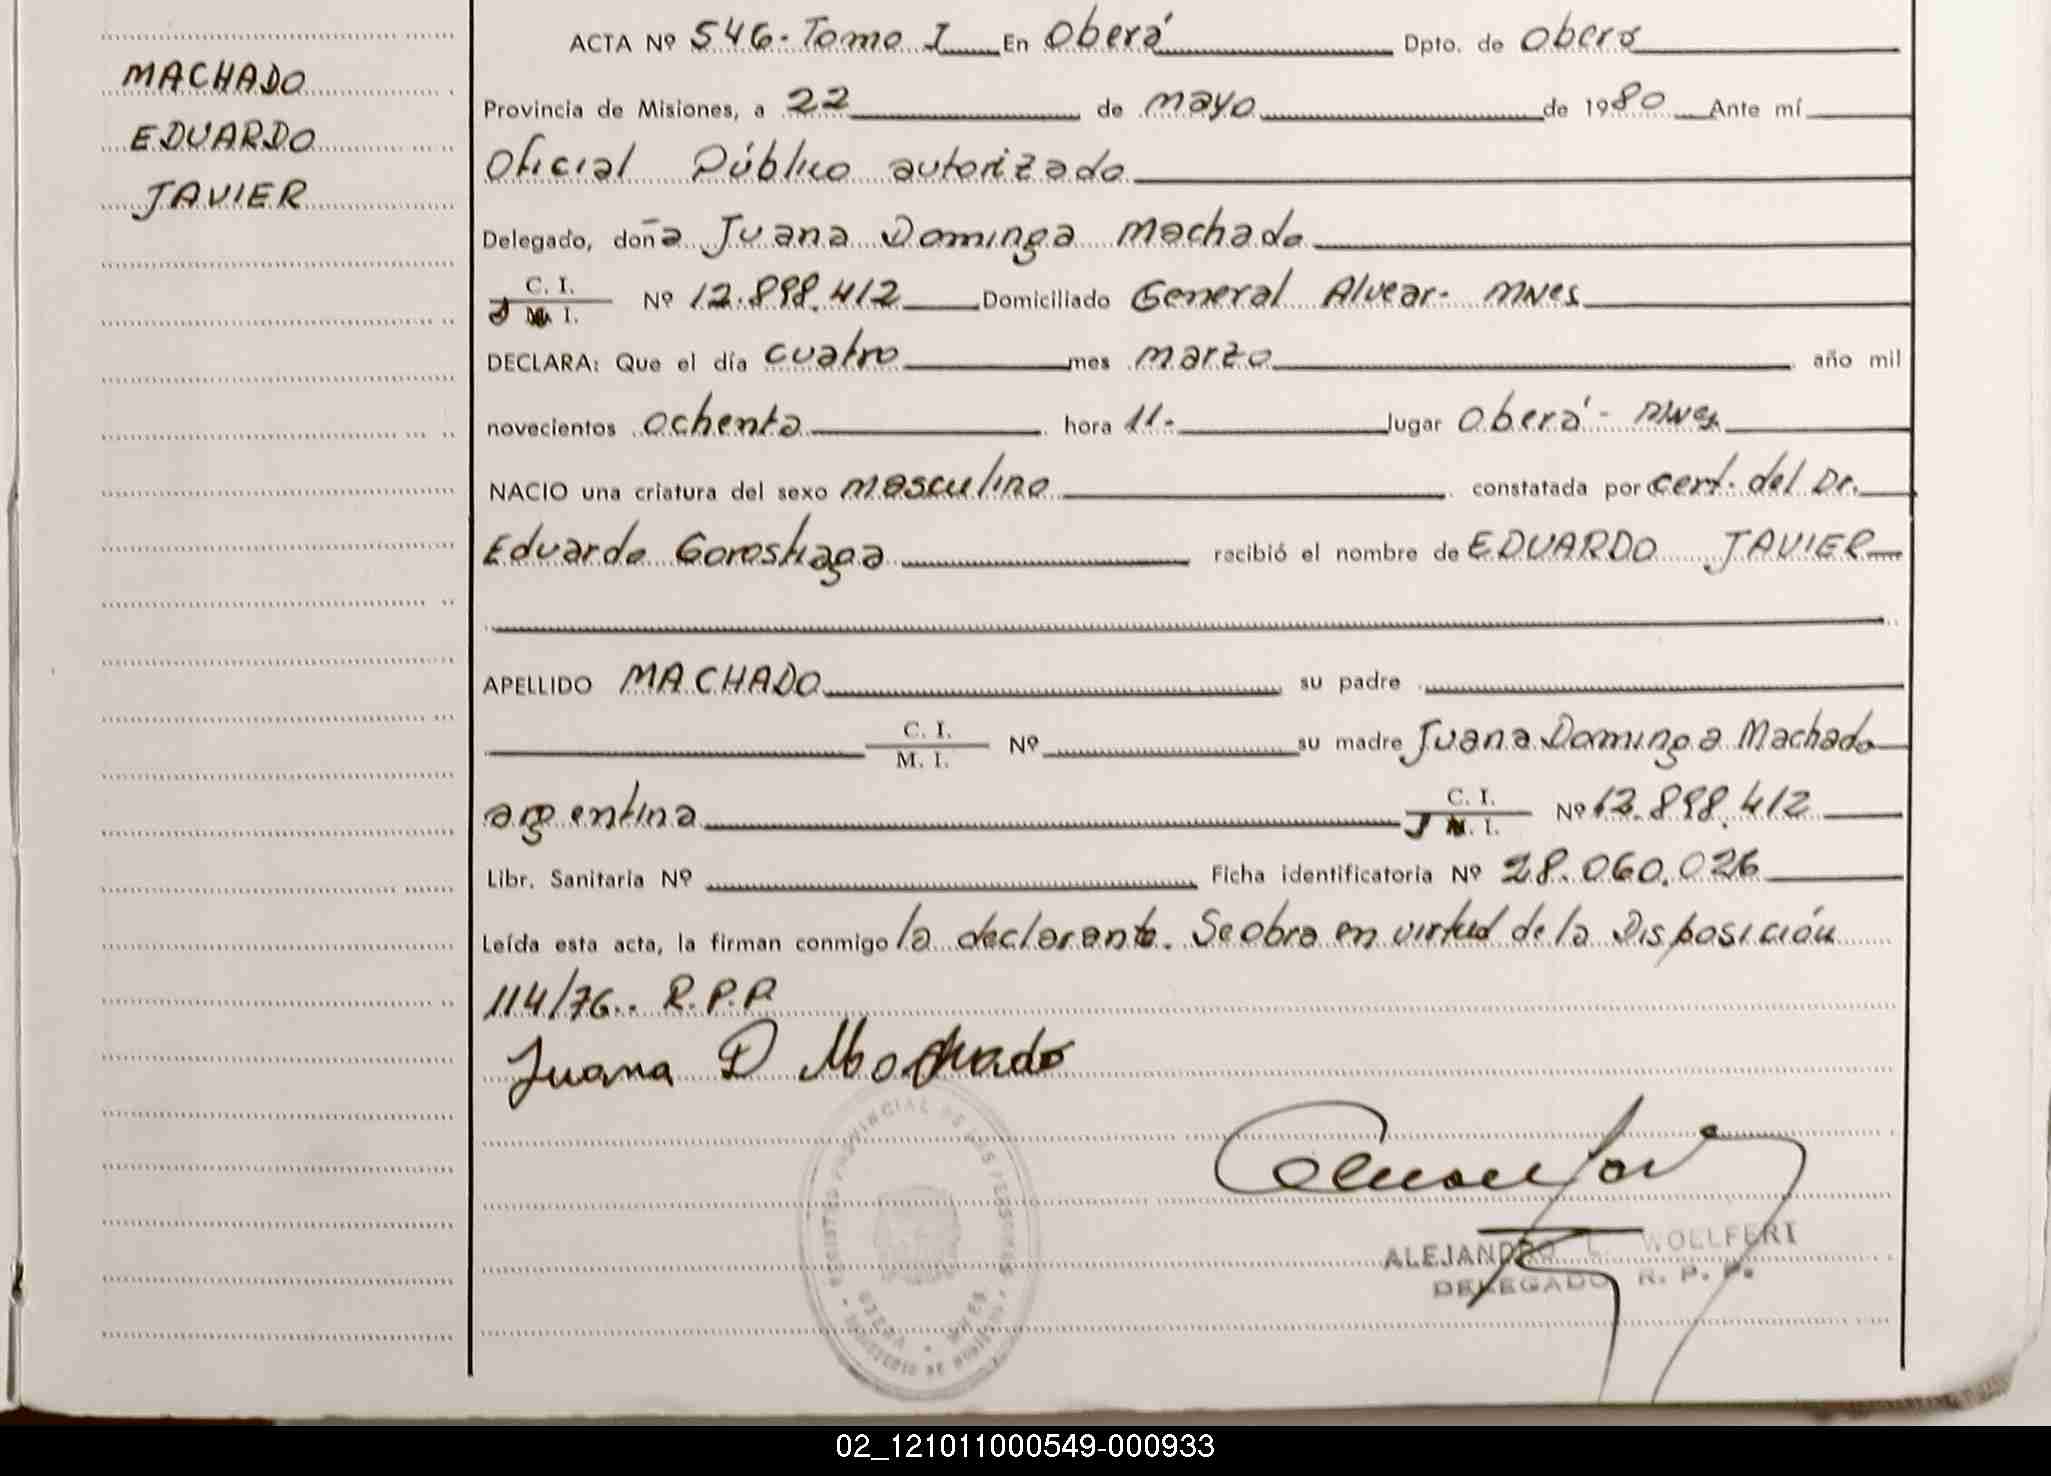 MACHADO
EDUARDO
JAVIER
ACTA Nº 546. Tomo I En Oberá Dpto. de Oberá
Provincia de Misiones, a 22 de mayo de 1980 Ante mí
Oficial Público autorizado
Delegado, doña Juana Dominga Machado
C. I.
M. I. Nº 12.898.412 Domiciliado General Alvear - MNes
DECLARA: Que el día cuatro mes marzo año mil
novecientos ochenta hora 11.- lugar Oberá - MNes
NACIO una criatura del sexo masculino constatada por cert. del Dr.
Eduardo Goroshaga recibió el nombre de EDUARDO JAVIER
APELLIDO MACHADO su padre
C. I.
M. I. Nº su madre Juana Dominga Machado
argentina C. I.
M. I. Nº 12.898.412
Libr. Sanitaria Nº Ficha identificatoria Nº 28.060.026
Leída esta acta, la firman conmigo la declarante. Se obra en virtud de la Disposición
114/76.. R.P.P.
Juana D Machado
REGISTRO PROVINCIAL DE LAS PERSONAS
OBERA MNES
ALEJANDRO L. WOLLFERT
DELEGADO R. P. P.
02_121011000549-000933